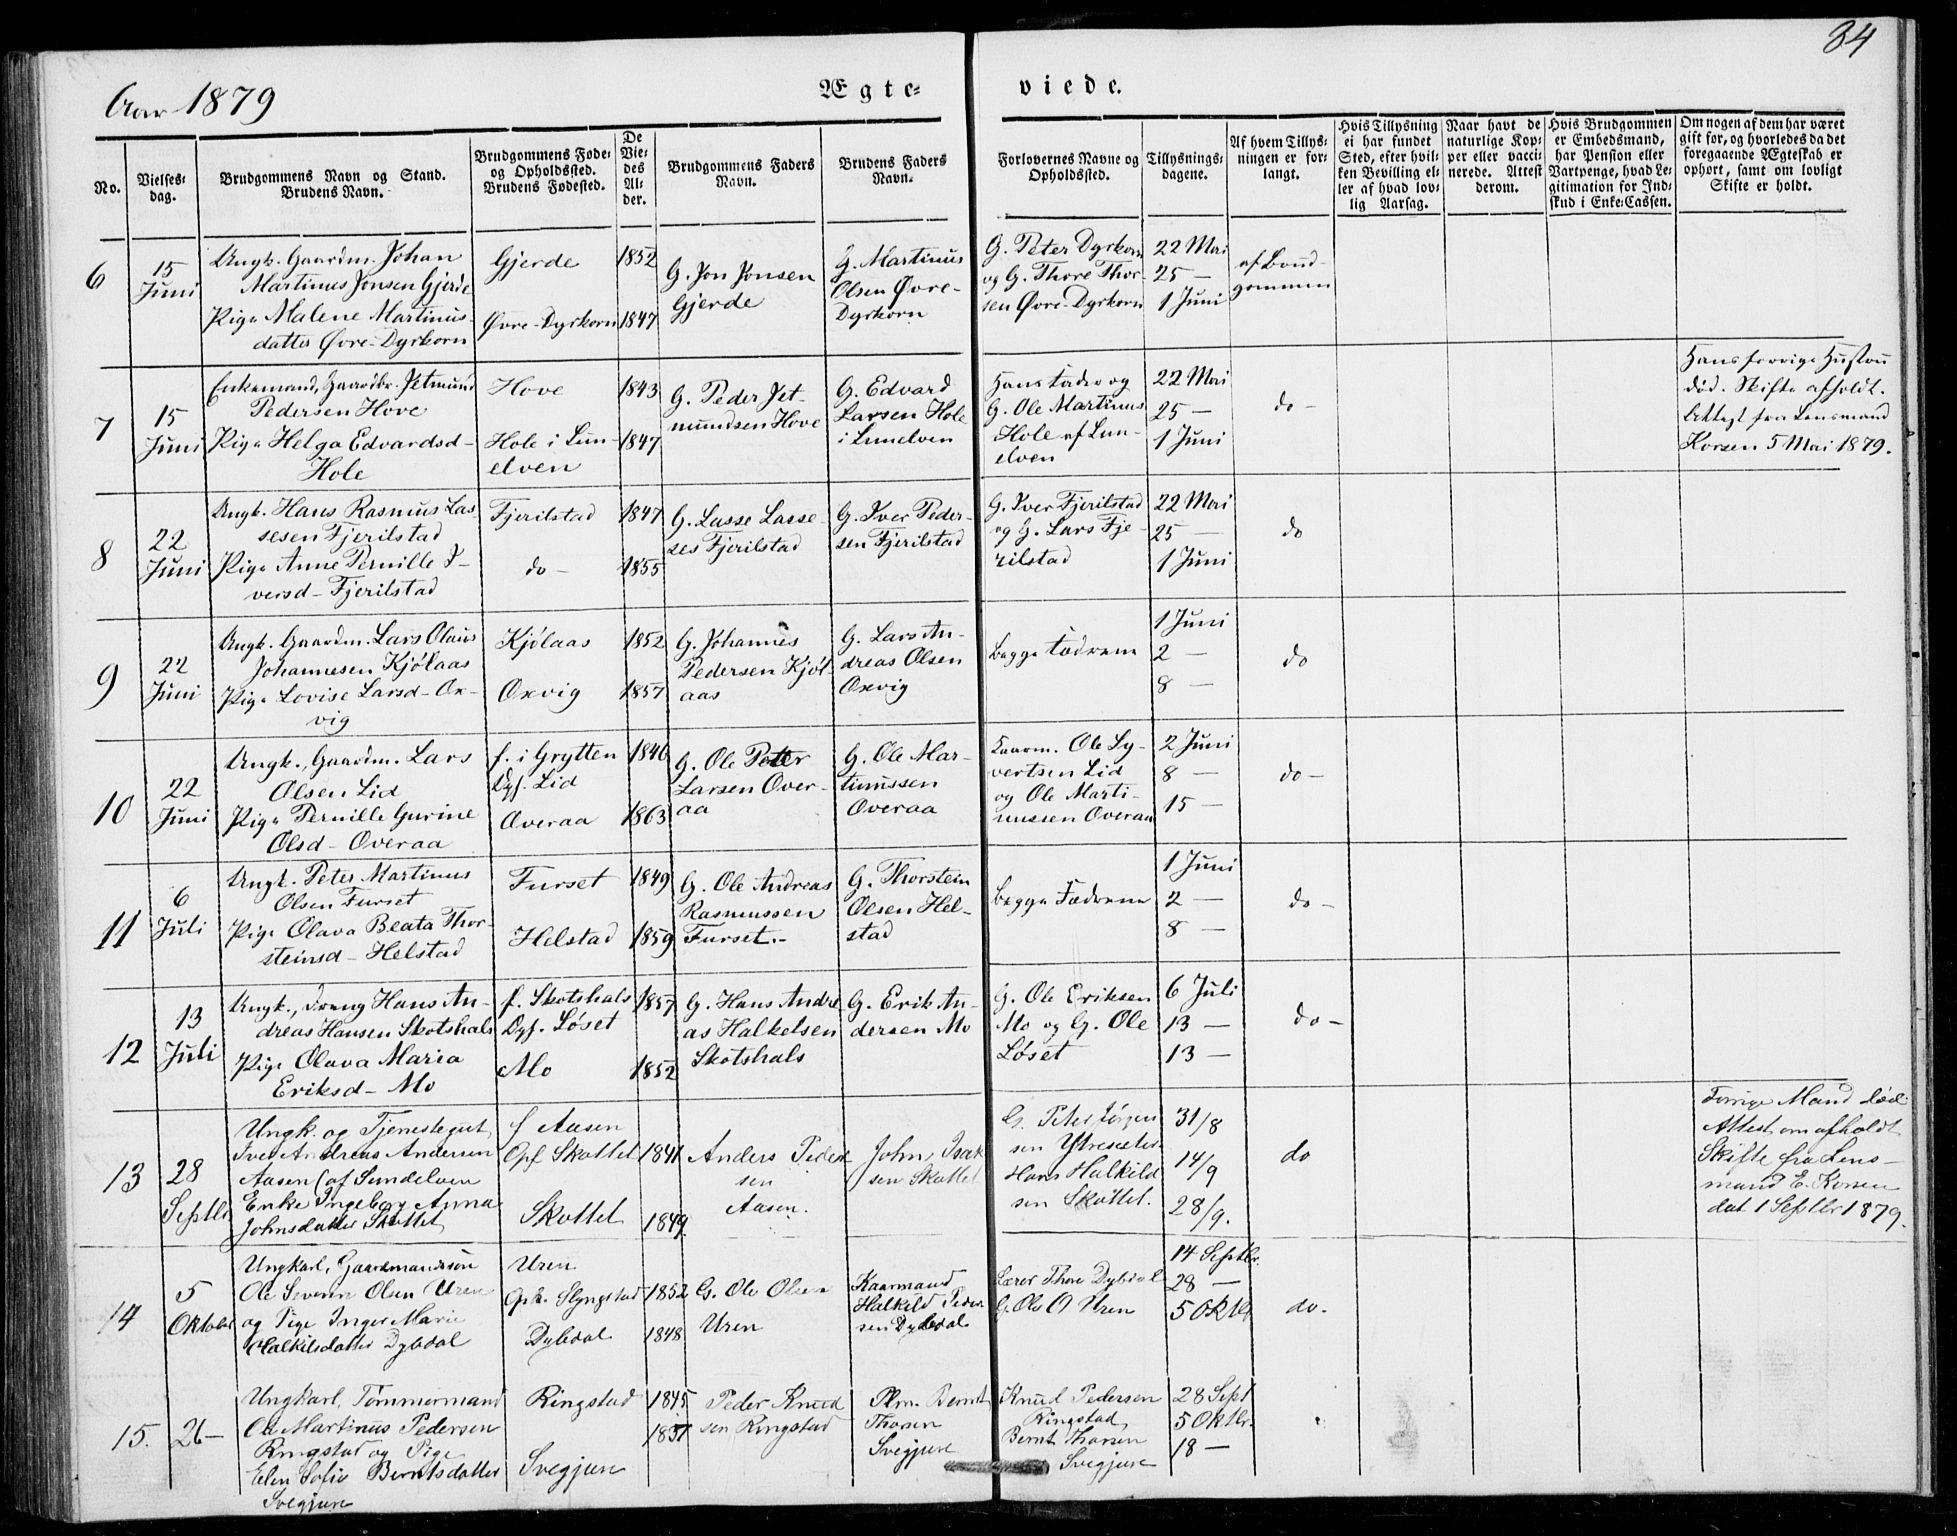 84
Aar 1879
Ægte-
viede.
No.
Vielses-
dag.
Brudgommens Navn og Stand.
Brudens Navn.
Brudgommens Føde-
og Opholdssted.
Brudens Fødested.
De
Vie-
des
Al-
der.
Brudgommens Faders
Navn.
Brudens Faders
Navn.
Forlovernes Navne og
Opholdssted.
Tillysnings-
dagene.
Af hvem Tillys-
ningen er for-
langt.
Hvis Tillysning
ei har fundet
Sted, efter hvil-
ken Bevilling el-
ler af hvad lov-
lig Aarsag.
Naar havt de
naturlige Kop-
per eller vacci-
nerede. Attest
derom.
Hvis Brudgommen
er Embedsmand,
har Pension eller
Vartpenge, hvad Le-
gitimation for Ind-
skud i Enke-Cassen.
Om nogen af dem har været
gift før, og hvorledes da det
foregaaende Ægteskab er
ophørt, samt om lovligt
Skifte er holdt.
6
15
Juni
Ungk. Gaardm. Johan
Martinus Jonsen Gjerde
Pige Malene Martinus-
datter Øvre-Dyrkorn
Gjerde
Øvre-Dyrkorn
1852
1847
G. Jon Jonsen
Gjerde
G. Martinus
Olsen Øvre-
Dyrkorn
G. Peter Dyrkorn
og G. Thore Thor-
sen Øvre-Dyrkorn
22 Mai
25 —
1 Juni
af Brud-
gommen
7
15
Juni
Enkemand, Gaardbr. Jetmund
Pedersen Hove
Pige Helga Edvardsd-
Hole
Hove
Hole i Sun-
elven
1843
1847
G. Peder Jet-
mundsen Hove
G. Edvard
Larsen Hole
i Sunelven
Hans Fader og
G. Ole Martinus
Hole af Sun-
elven
22 Mai
25 —
1 Juni
do -
Hans forrige Hustru
død. Skifte afholdt.
Attest fra Lensmand
Korsen 5 Mai 1879.
8
22
Juni
Ungk. Hans Rasmus Las
sesen Fjerilstad
Pige Anne Pernille I-
versd- Fjerilstad
Fjerilstad
do -
1847
1855
G. Lasse Lasse-
ses Fjerilstad
G. Iver Peder-
sen Fjerilstad
G. Iver Fjerilstad
og G. Lars Fje-
rilstad
22 Mai
25 —
1 Juni
do
9
22
Juni
Ungk. Gaardm. Lars Olaus
Johannesen Kjølaas
Pige Lovise Larsd- Ox-
vig
Kjølaas
Oxvig
1852
1857
G. Johannes
Pedersen Kjøl-
aas
G. Lars An-
dreas Olsen
Oxvig
Begge Fædrene
1 Juni
2 —
8 —
do
10
22
Juni
Ungk., Gaardm. Lars
Olsen Lid
Pige Pernille Gurine
Olsd- Overaa
f. i Grytten
Oph. Lid
Overaa
1846
1863
G. Ole Peter
Larsen Over-
aa
G. Ole Mar-
tinussen
Overaa
Kaarm. Ole Sy-
vertsen Lid
og Ole Marti-
nussen Overaa
2 Juni
8 —
15 —
do -
11
6
Juli
Ungk. Peter Martinus
Olsen Furset
Pige Olava Beata Thor-
steinsd- Helstad
Furset
Helstad
1849
1859
G. Ole Andreas
Rasmussen
Furset.-
G. Thorstein
Olsen Hel-
stad
Begge Fædrene
1 Juni
2 —
8 —
do -
12
13
Juli
Ungk., Dreng Hans An-
dreas Hansen Skotshals
Pige Olava Maria
Eriksd- Mo
f. Skotshals
Oph. Løset
Mo
1857
1852
G. Hans Andre
as Halkelsen
Skotshals
G. Erik An-
dersen Mo
G. Ole Eriksen
Mo og G. Ole
Løset
6 Juli
13 —
13 —
do -
13
28
Septbr
Ungk. og Tjenestegut
Iver Andreas Andersen
Aasen (af Sundelven
Enke Ingeborg Anna
Johnsdatter Skottet
f Aasen
Oph Skottet
Skottet
1841
1849.
Anders Peder
sen
Aasen.
John Isak
sen Skottet
G. Peter Jørgen
sen Ytresæter
Hans Halkild
sen Skottet.
31/8
14/9
28/9.
do
Forrige Mand død
Attest om afholdt
Skifte fra Lens-
mand E. Korsen
dat 1 Septbr 1879.
14
5
Oktober
Ungkarl, Gaardmandssøn
Ole Severin Olsen Uren
og Pige Inger Marie
Halkildsdatter Dybdal
Uren
Oph. Slyngstad
Dybdal
1852
1848
G. Ole Olsen
Uren
Kaarmand
Halkild Peder
sen Dybdal
Lærer Thore Dybdal
G. Ole O Uren
14 Septbr.
28 —
5 Oktbr
do.
15.
26 —
Ungkarl, Tømmermand
Ole Martinus Pedersen
Ringstad og Pige
Elen Sofie Berntsdatter
Svegjure
Ringstad
Svegjure
1845
1851
Peder Knud
sen Ringstad
Plm. Bernt
Thorsen
Svegjure
Knud Pedersen
Ringstad
Bernt Thorsen
Svegjure
28 Sept
5 Oktbr.
18 —